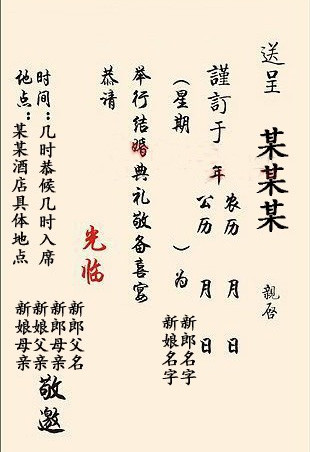 送呈 某某某 親啓
謹訂于 年 农历 月 日
公历 月 日
（星期 ）为
新郎名字
新娘名字
举行结婚典礼敬备喜宴
恭请
光临
新郎父名
新郎母亲
新娘父亲
新娘母亲
敬邀
时间：几时恭候几时入席
地点：某某酒店具体地点